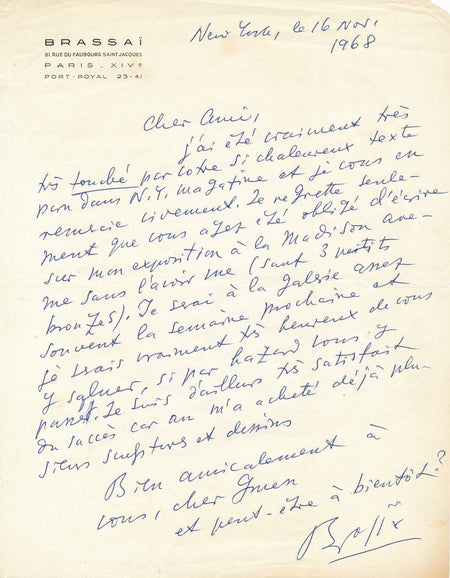 BRASSAÏ
81, RUE DU FAUBOURG SAINT-JACQUES
PARIS - XIVe
PORT-ROYAL 23-41
New York, le 16 Nov.
1968
Cher Ami,
j'ai été vraiment très
très touché par votre si chaleureux texte
paru dans N.Y. magazine et je vous en
remercie vivement. Je regrette seule-
ment que vous ayez été obligé d'écrire
sur mon exposition à la Madison ave-
nue sans l'avoir vue (sauf 3 petits
bronzes). Je serai à la galerie assez
souvent la semaine prochaine et
je serais vraiment très heureux de vous
y saluer, si par hazard vous y
passez. Je suis d'ailleurs très satisfait
du succès car on m'a acheté déjà plu-
sieurs sculptures et dessins
Bien amicalement à
vous, cher Gruen
et peut-être à bientôt?
Brassaï